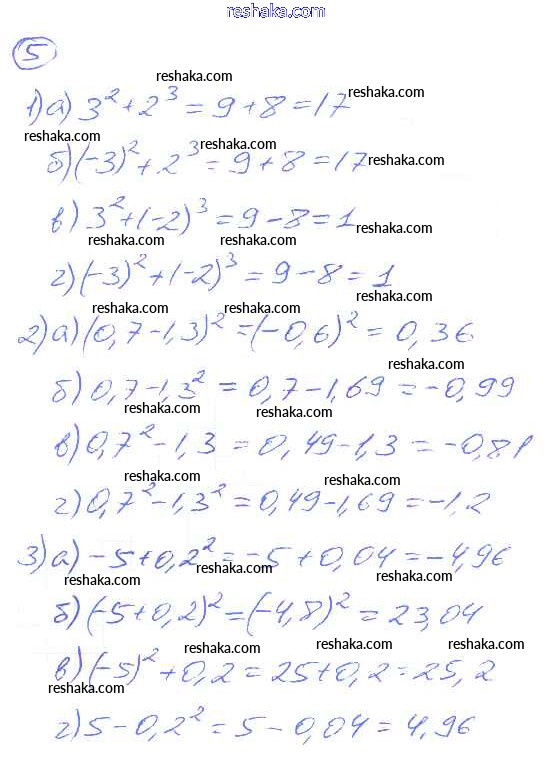 reshaka.com
5
reshaka.com
1) а) 3² + 2³ = 9 + 8 = 17 reshaka.com
reshaka.com reshaka.com
б) (-3)² + 2³ = 9 + 8 = 17 reshaka.com
в) 3² + (-2)³ = 9 - 8 = 1 reshaka.com
reshaka.com reshaka.com
г) (-3)² + (-2)³ = 9 - 8 = 1 reshaka.com
reshaka.com reshaka.com
2) а) (0,7 - 1,3)² = (-0,6)² = 0,36
reshaka.com
б) 0,7 - 1,3² = 0,7 - 1,69 = -0,99
reshaka.com reshaka.com
в) 0,7² - 1,3 = 0,49 - 1,3 = -0,81
reshaka.com reshaka.com
г) 0,7² - 1,3² = 0,49 - 1,69 = -1,2
3) а) -5 + 0,2² = -5 + 0,04 = -4,96
reshaka.com reshaka.com reshaka.com
б) (-5 + 0,2)² = (-4,8)² = 23,04
reshaka.com reshaka.com reshaka.com
в) (-5)² + 0,2 = 25 + 0,2 = 25,2
reshaka.com
г) 5 - 0,2² = 5 - 0,04 = 4,96